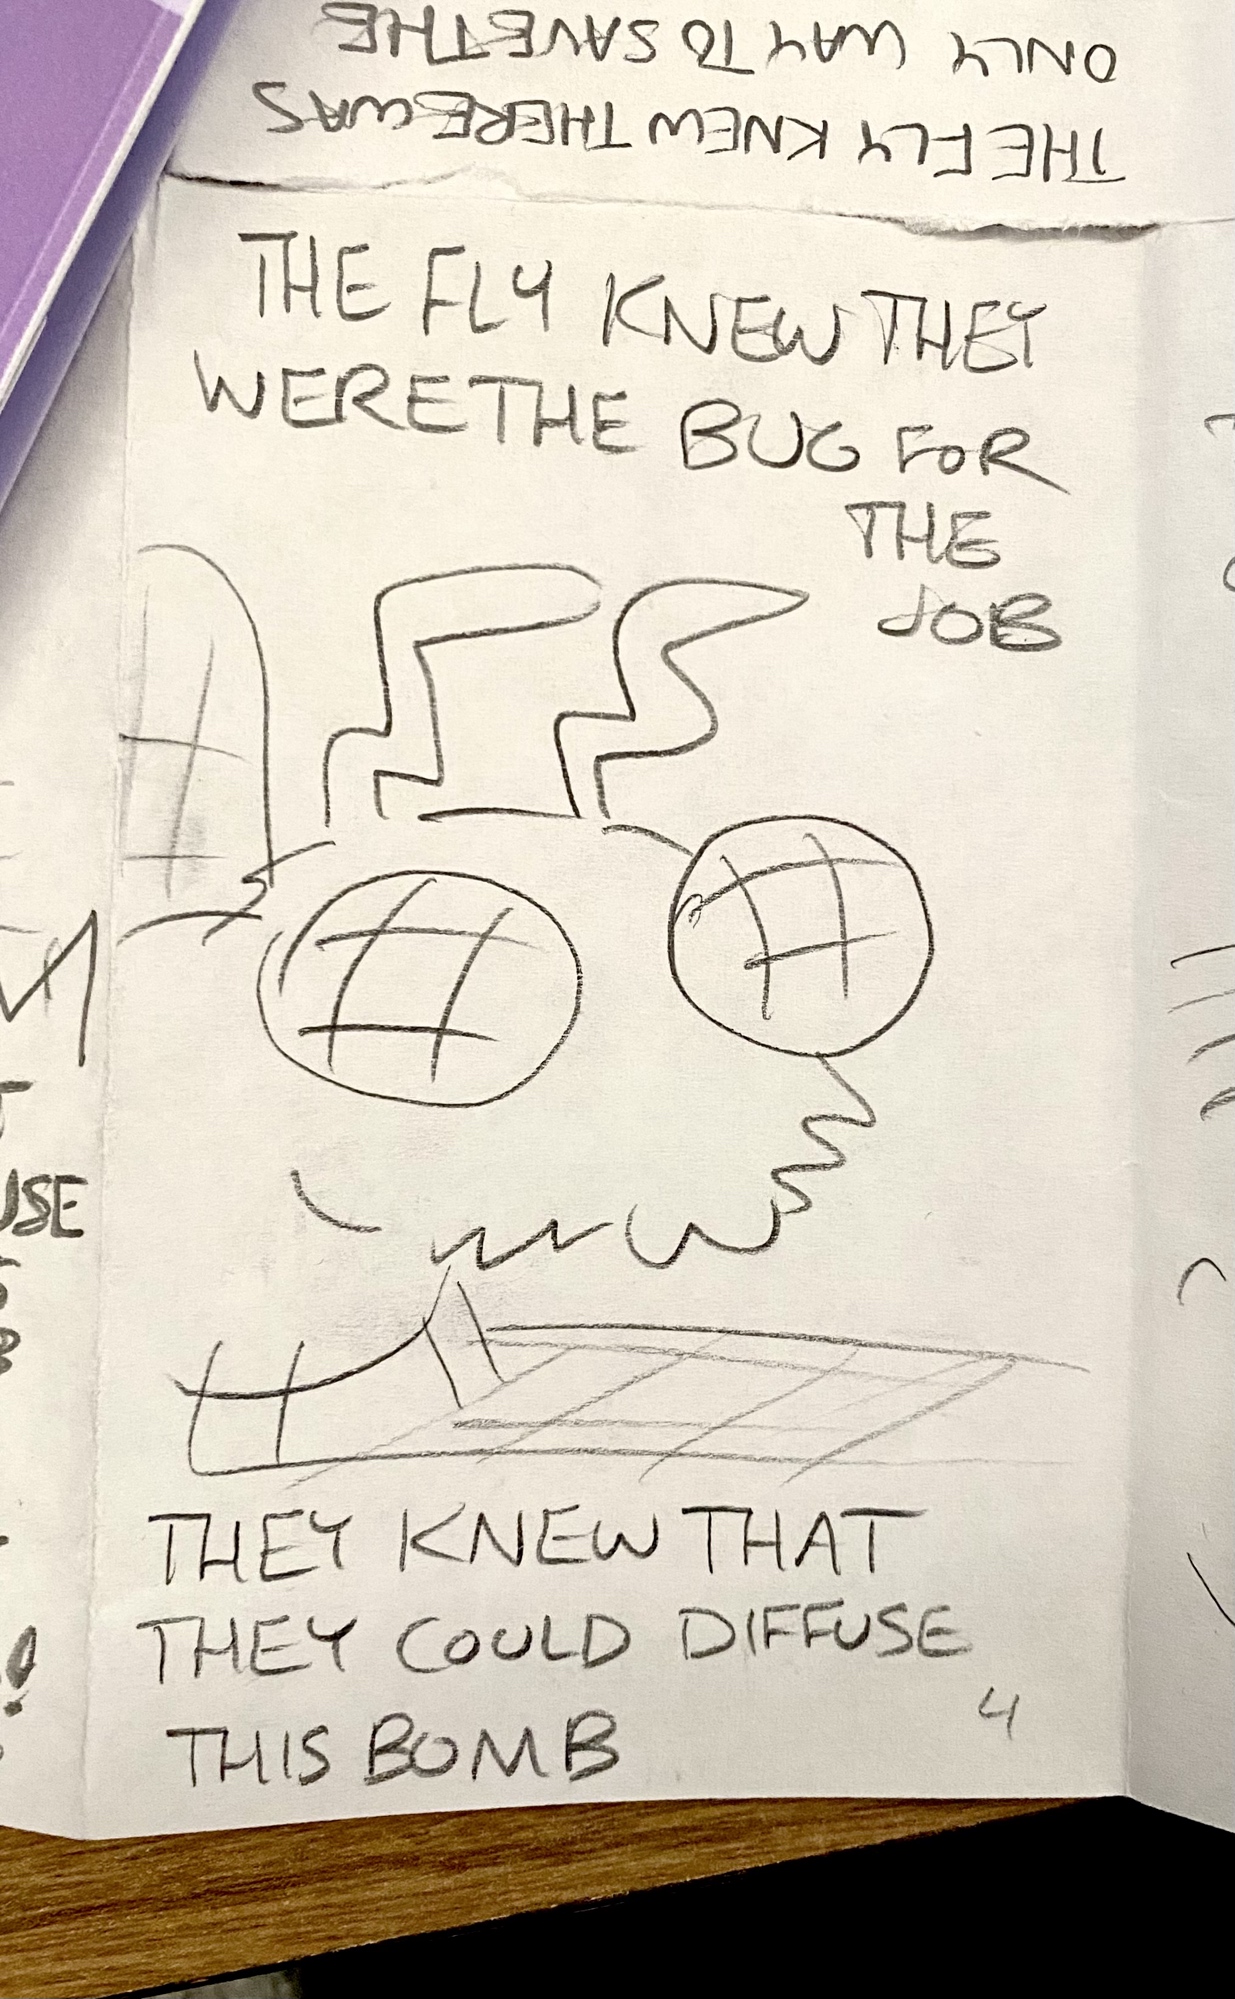 THE FLY KNEW THERE WAS
ONLY WAY TO SAVE THE
THE FLY KNEW THEY
WERE THE BUG FOR
THE
JOB
USE
THEY KNEW THAT
THEY COULD DIFFUSE
THIS BOMB
4